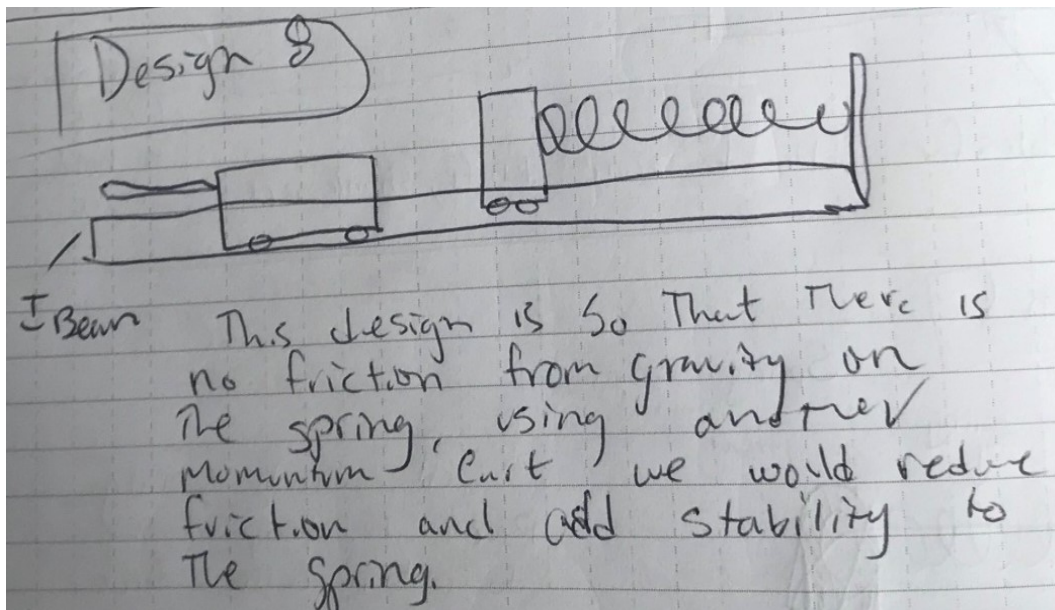 Design 8
I Beam
This design is so That There is
no friction from gravity on
The spring, using another
momentum Cart we would reduce
friction and add stability to
The spring.